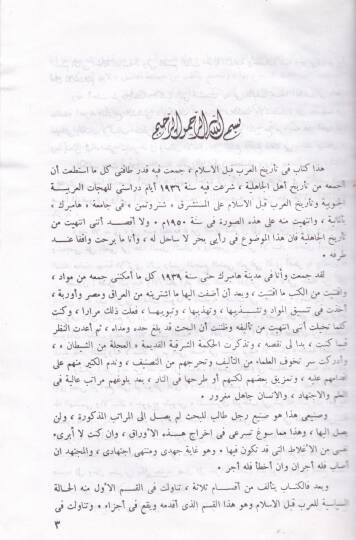 بسم الله الرحمن الرحيم
هذا كتاب فى تأريخ العرب قبل الاسلام ، جمعت فيه قدر طاقتى كل ما استطعت أن
أجمعه من تأريخ أهل الجاهلية ، شرعت فيه سنة ١٩٣٦ أيام دراستى للهجات العربية
الجنوبية وتأريخ العرب قبل الاسلام على المستشرق ، شتروتمن ، فى جامعة ، هامبرك ،
بألمانية ، وانتهيت منه على هذه الصورة فى سنة ١٩٥٠م . ولا أقصد أننى انتهيت من
تأريخ الجاهلية فان هذا الموضوع فى رأيى بحر لا ساحل له ، وأنا ما برحت واقفا عند
طرفه .
لقد جمعت وأنا فى مدينة هامبرك حتى سنة ١٩٣٩ كل ما أمكننى جمعه من مواد ،
واقتنيت من الكتب ما اقتنيت ، وبعد أن أضفت اليها ما اشتريته من العراق ومصر وأوربة ،
أخذت فى تنسيق المواد وتشذيبها ، وتهذيبها ، وتبويبها ، فعلت ذلك مرارا ، وكنت
كلما تخيلت أننى انتهيت من تأليفه وظننت أن البحث قد بلغ حده ومداه ، ثم أعدت النظر
فيما كتبت ، بدا لى نقصه ، وتذكرت الحكمة الشرقية القديمة « العجلة من الشيطان » ،
وأدركت سر تخوف العلماء من التأليف وتحرجهم من التصنيف ، وندم الكثير منهم على
اقدامهم عليه ، وتمزيق بعضهم لكتبهم أو طرحها فى النار ، بعد بلوغهم مراتب عالية فى
العلم والاجتهاد ، والانسان جاهل مغرور .
وصنيعى هذا هو صنيع رجل طالب للبحث لم يصل الى المراتب المذكورة ، ولن
يصل اليها ، وهذا مما سوغ تسرعى فى إخراج هذه الأوراق ، وان كنت لا أبرىء
نفسى من الأغلاط التى قد تكون فيها ، وهو غاية جهدى ومنتهى اجتهادى ، والمجتهد ان
أصاب فله أجران وان أخطأ فله أجر .
وبعد فالكتاب يتألف من أقسام ثلاثة ، تناولت فى القسم الأول منه الحالة
السياسية للعرب قبل الاسلام وهو هذا القسم الذى أقدمه ويقع فى أجزاء ، وتناولت فى
٣